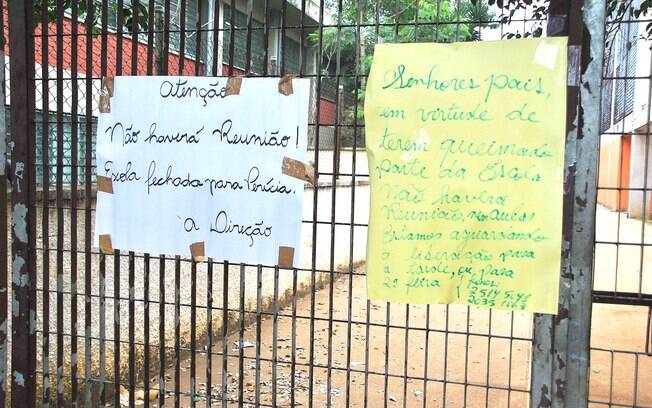 Atenção
Não haverá Reunião!
Escola fechada para Perícia.
A Direção
Senhores pais,
em virtude de
terem queimado
parte da Escola
Não haverá
Reunião, nem Aulas
Estamos aguardando
a liberação para
a tarde, ou para
2ª feira